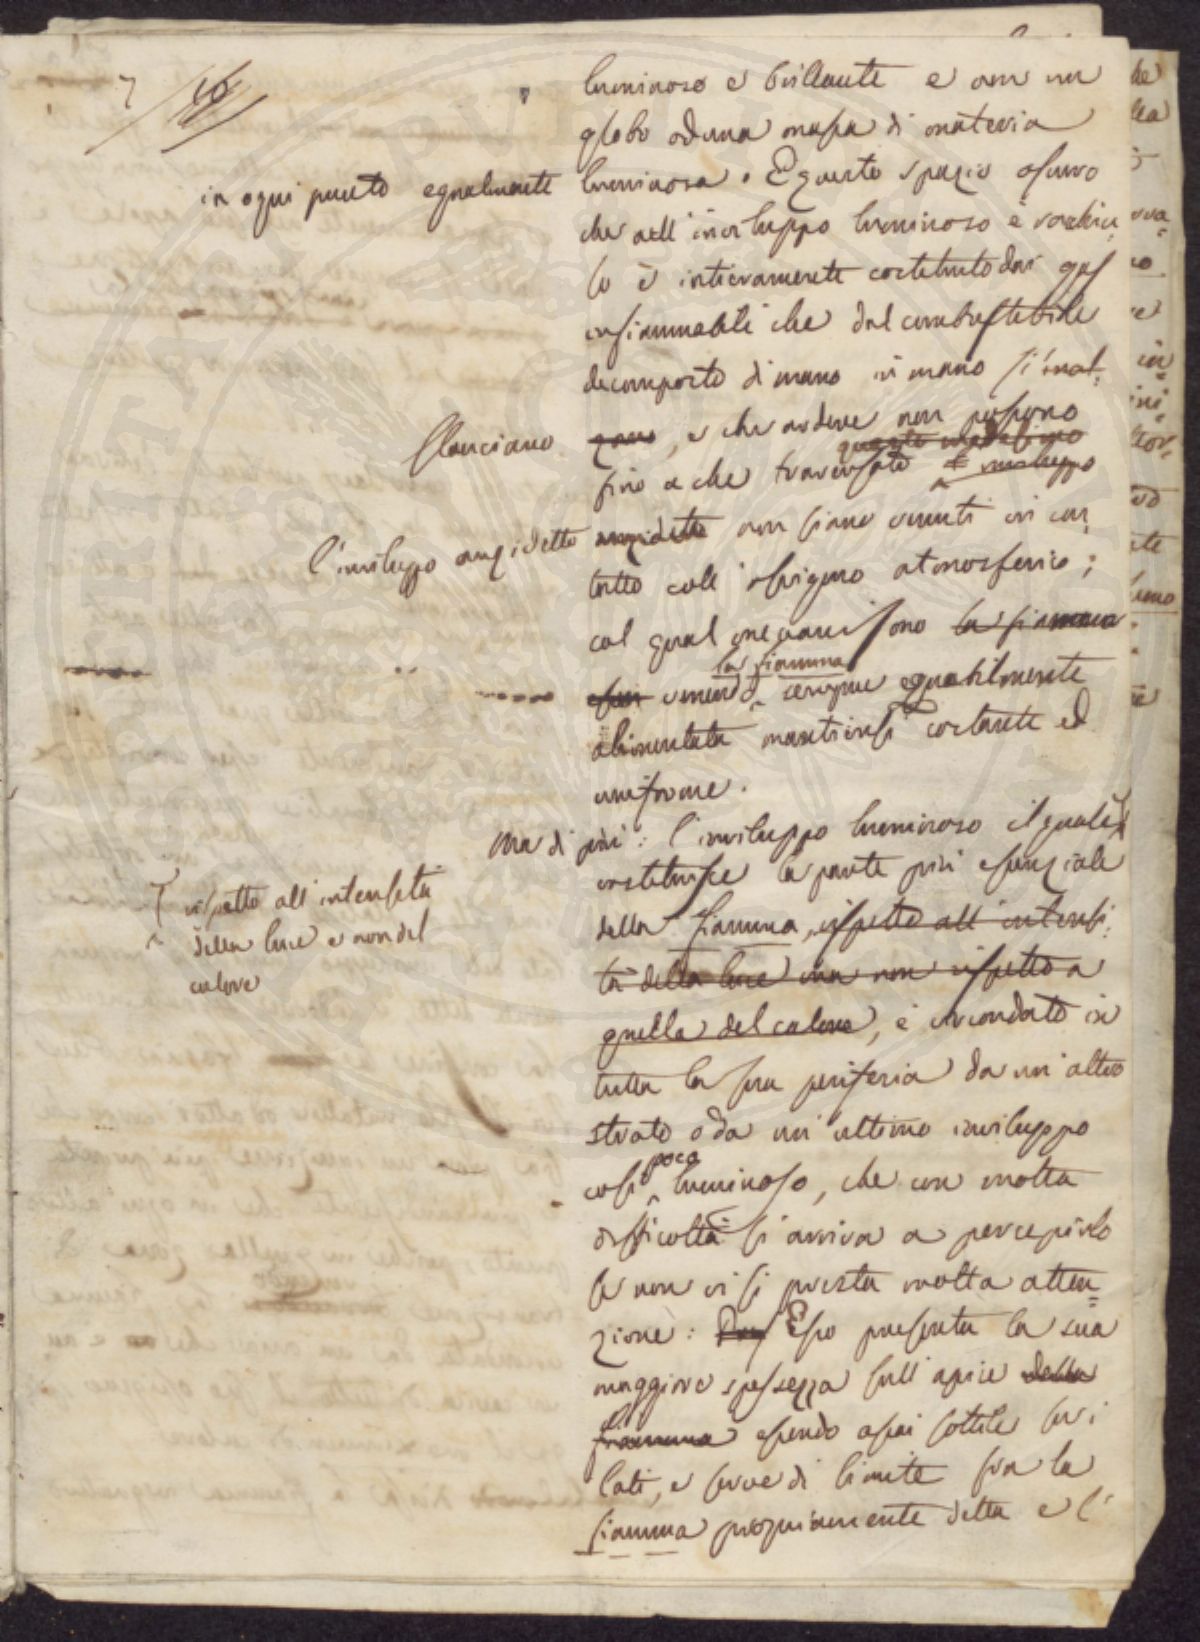 luminoso e brillante e non un
globo od una massa di materia
in ogni punto egualmente luminosa. E questo spazio oscuro
che nell'inviluppo luminoso è racchiu-
so è intieramente costituito dai gas
infiammabili che dal combustibile
decomposto di mano in mano s'inal-
slanciano, e che ardere non possono
fino a che traversato questo medesimo inviluppo
l'inviluppo anzidetto anzidetto non siano venuti in con-
tatto coll'ossigeno atmosferico;
col qual mezzo la fiamma
venendo la fiamma sempre equabilmente
alimentata mantiensi costante ed
uniforme.
Ma di più: l'inviluppo luminoso il quale
costituisce la parte più essenziale
rispetto all'intensità
della luce e non del
calore
della fiamma, rispetto all'intensi-
tà della luce ma non rispetto a
quella del calore, è circondato in
tutta la sua periferia da un'altro
strato o da un'ultimo inviluppo
così poco luminoso, che con molta
difficoltà si arriva a percepirlo
se non vi si presta molta atten=
zione: Esso presenta la sua
maggiore spessezza sull'apice della
fiamma essendo assai sottile sui
lati, e serve di limite fra la
fiamma propriamente detta e l'